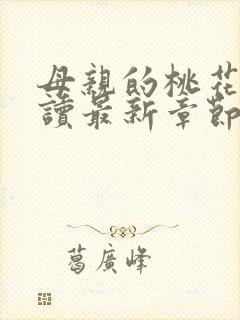 母親的桃花
讀最新章節
葛廣峰